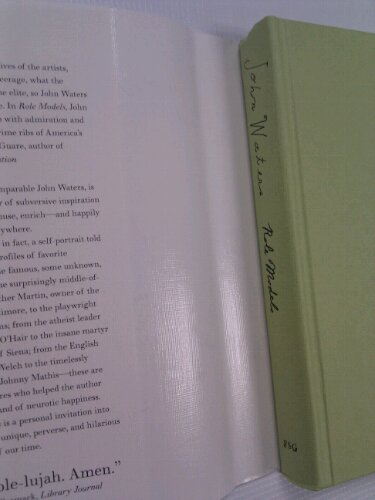 ives of the artists,
eerage, what the
ne elite, so John Waters
e. In Role Models, John
o with admiration and
rime ribs of America's
Guare, author of
ation
mparable John Waters, is
y of subversive inspiration
use, enrich—and happily
ywhere.
in fact, a self-portrait told
rofiles of favorite
e famous, some unknown,
e surprisingly middle-of-
ther Martin, owner of the
timore, to the playwright
ns; from the atheist leader
O'Hair to the insane martyr
of Siena; from the English
Welch to the timelessly
Johnny Mathis—these are
res who helped the author
and of neurotic happiness.
is a personal invitation into
unique, perverse, and hilarious
f our time.
ole-lujah. Amen."
Library Journal
John Waters
Role Models
FSG